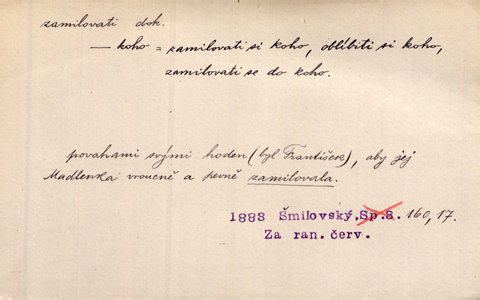 zamilovati dok.
— koho = zamilovati si koho, oblíbiti si koho,
zamilovati se do koho.
povahami svými hoden (byl František), aby jej
Madlenka vroucně a pevně zamilovala.
1883 Šmilovský, Sp.8. 160,17.
Za ran. červ.